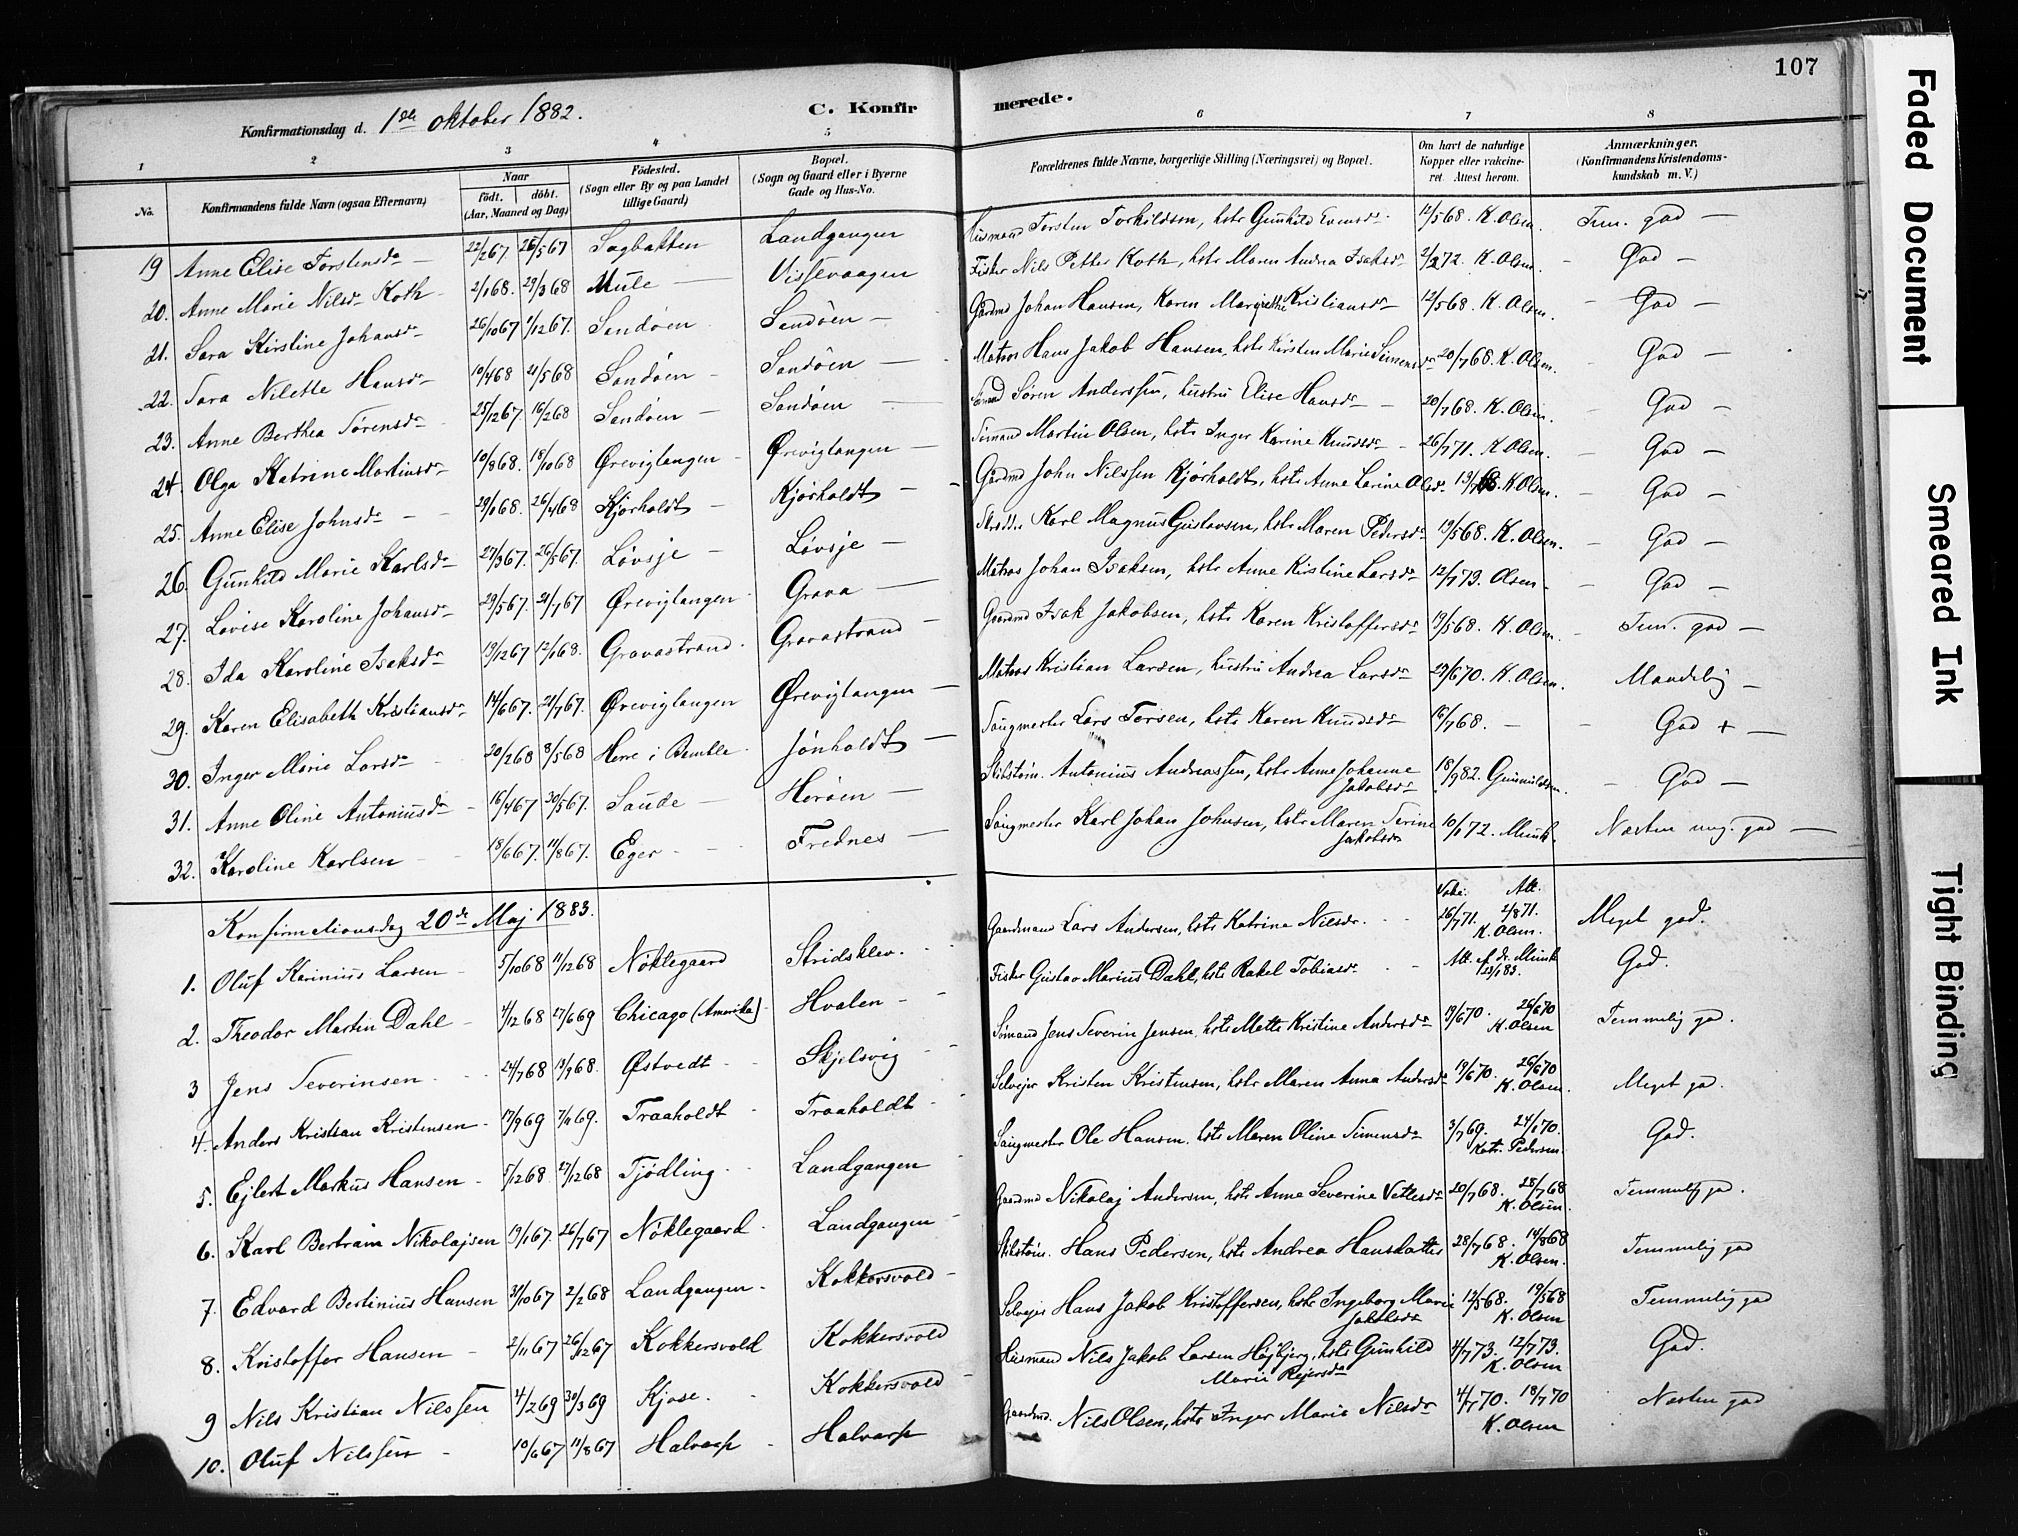 107
Konfirmationsdag d. 1ste Oktober 1882.
C. Konfirmerede.
1 2 3 4 5 6 7 8
No. Konfirmandens fulde Navn (ogsaa Efternavn) Naar født. døbt. (Aar, Maaned og Dag) Fødested. (Sogn eller By og paa Landet tillige Gaard) Bopæl. (Sogn og Gaard eller i Byerne Gade og Hus-No. Forældrenes fulde Navne, borgerlige Stilling (Næringsvei) og Bopæl. Om havt de naturlige Kopper eller vakcineret. Attest herom. Anmærkninger. (Konfirmandens Kristendomskundskab m. V.)
19 Anne Elise Torstensdr — 22/267. 26/567 Sagbakken Landgangen Husmand Torsten Torkildsen, hstr Gunhild 12/568. K. Olsen. Tem. god —
20. Anne Marie Nilsdr Koth 2/168. 29/368 Mule — Vissevaagen Fisker Nils Petter Koth, hstr Maren Andrea Isaksdr 2/272. K. Olsen. — God —
21. Sara Kirstine Johansdr 26/1067 1/1267. Sandøen Sandøen — Gårdmd Johan Hansen, Karen Margrethe Kristiansdr — 12/568. K. Olsen. — God —
22. Sara Nilette Hansdr 10/468 21/568 Sandøen — Sandøen — Matros Hans Jakob Hansen, hstr Kirsten Marie Simensdr 20/768. K. Olsen. God —
23. Anne Berthea Sørensdr 25/1267. 16/268 Sandøen — Sandøen — Sømand Søren Anderssen, hustru Elise Hansdr — 20/768. K. Olsen. God —
24 Olga Katrine Martinsdr 10/868. 18/1068 Ørevigtangen — Ørevigtangen — Sømand Martin Olsen, hstr Inger Karine Knudsdr — 26/771. K. Olsen. — God —
25. Anne Elise Johnsdr — — 29/168. 26/468 Kjørholdt — Kjørholdt — Gårdmd John Nilssen Kjørholdt, hstr Anne Larine Olsdr 13/768. K. Olsen. — God —
26. Gunhild Marie Karlsdr 27/367. 26/567. Løvsje — Løvsje — Karl Magnus Gustavsen, hstr Maren Pedersdr 19/568. K. Olsen. — God —
27. Lovise Karoline Johansdr 29/567. 21/767 Ørevigtangen Grava — Matros Johan Isaksen, hstr Anne Kirstine Larsdr 12/773. Olsen. — God —
28. Ida Karoline Isaksdr 19/1267 12/168. Gravastrand. Gravastrand — Gaardmd Isak Jakobsen, hstr Karen Kristoffersdr 19/568. K. Olsen. — Tem. god —
29. Karen Elisabeth Kristiansdr 14/667. 21/767. Ørevigtangen Ørevigtangen — Matros Kristian Larsen, hustru Andrea Larsdr 29/670. K. Olsen. Maadelig —
30. Inger Marie Larsdr 20/268 8/568 Herre i Bamble. Jønholdt — Saugmester Lars Torsen, hstr Karen Knudsdr 16/768. — — God + —
31. Anne Oline Antoniusdr — 16/467 30/567. Saude — Herøen — Skibstøm. Antonius Andreassen, hstr Anne Johanne Jakobsdr 18/982. — God —
32. Karoline Karlsen — — 18/667. 11/867. Eger — — Frednes — Saugmester Karl Johan Johnsen, hstr Maren Serine Jakobsdr 10/172. Munk. Næsten mg. god —
Konfirmationsdag 20de Maj 1883.
Vakc. Att.
1. Oluf Karinius Larsen — 5/1068 11/1268 Nøklegaard Stridsklev. Gaardmand Lars Andersen, hstr Katrine Nilsdr. 26/771. 2/871. K. Olsen. Meget god.
2. Theodor Martin Dahl — 4/1268 27/669 Chicago (Amerika). Hvalen — Fisker Gustav Marius Dahl, hstr Rakel Tobiasdr. Att. af dr. Munk 23/183. God.
3 Jens Severinsen 24/768 13/968. Østvedt Skjelsvig Sömand Jens Severin Jensen, hstr Mette Kristine Andersdr 19/670. 26/670 K. Olsen Temmelig god.
4. Anders Kristian Kristensen — 17/969 7/1169. Traaholdt Traaholdt Selvejer Kristen Kristensen, hstr Maren Anna Andersdr 19/670. 26/670 K. Olsen. Meget god.
5. Ejlert Markus Hansen 5/1268 27/1268 Tjødling Landgangen Saugmester Ole Hansen, hstr Maren Oline Simensdr 3/769. 24/170. Katr. Pedersen. God.
6. Karl Bertram Nikolajsen 19/167. 26/767 Nøklegaard Landgangen Gaardmd Nikolaj Andersen, hstr Anne Severine Vetlesdr 20/768. 28/768 K. Olsen. Temmelig god.
7. Edvard Bertinius Hansen 31/1067 2/268 Landgangen. Kokkersvold — Skibstøm. Hans Pedersen, hstr Andrea Hansdatter 28/768. 14/868 K. Olsen. Temmelig god
8. Kristoffer Hansen — 2/1167 26/1267 Kokkersvold Kokkersvold Selvejer Hans Jakob Kristoffersen, hstr Ingeborg Marie Jakobsdr 12/568. 19/568 K. Olsen Temmelig god
9 Nils Kristian Nilssen 4/269 30/369 Kjose. Kokkersvold Husmand Nils Jakob Larsen Højbjerg, hstr Gunhild Marie Rejersdr 4/773. 12/773. K. Olsen God.
10. Oluf Nilssen — 10/667 11/867 Halvarp — Halvarp Gaardmd. Nils Olsen, hstr Inger Marie Nilsdr 4/770. 18/770 K. Olsen Næsten god
Faded Document
Smeared Ink
Tight Binding